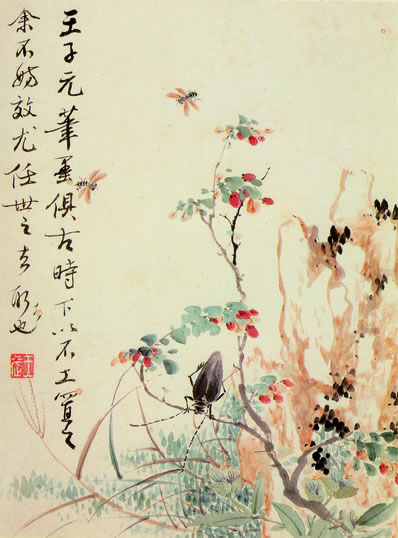 王子元筆墨俱古時下以不工置之
余不妨效尤任世之去取也